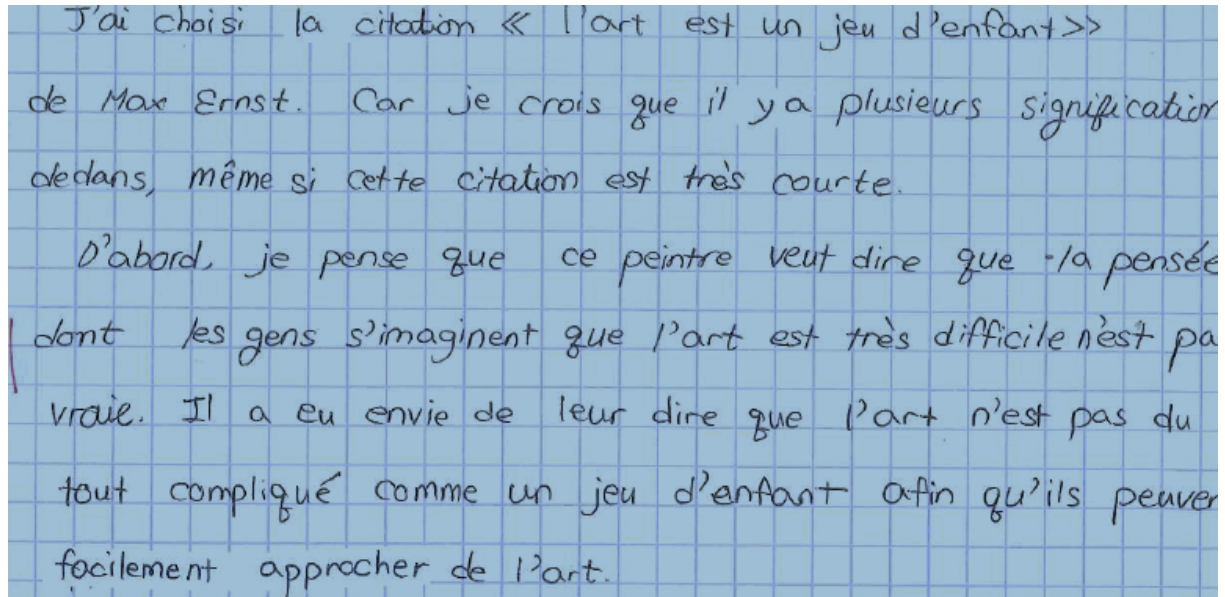 J'ai choisi la citation « l'art est un jeu d'enfant>>
de Max Ernst. Car je crois que il y a plusieurs signification
dedans, même si cette citation est très courte.
D'abord, je pense que ce peintre veut dire que la pensée
dont les gens s'imaginent que l'art est très difficile n'est pa
vraie. Il a eu envie de leur dire que l'art n'est pas du
tout compliqué comme un jeu d'enfant afin qu'ils peuver
facilement approcher de l'art.